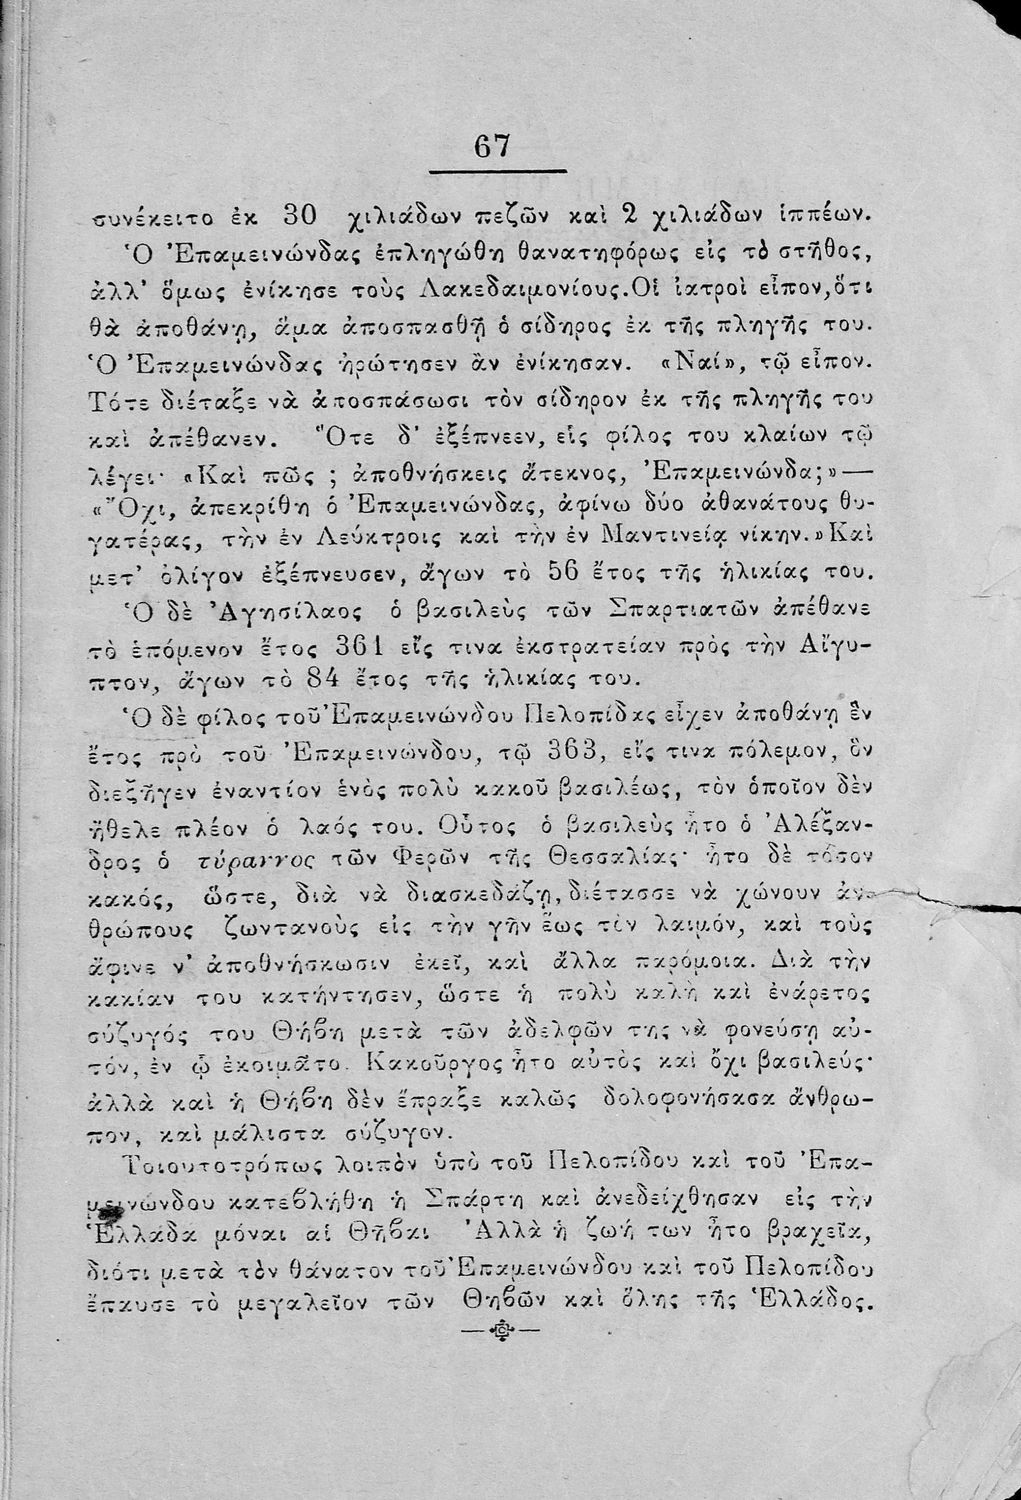 67
συνέκειτο ἐκ 30 χιλιάδων πεζῶν καὶ 2 χιλιάδων ἱππέων.
Ὁ Ἐπαμεινώνδας ἐπληγώθη θανατηφόρως εἰς τὸ στῆθος,
ἀλλ' ὅμως ἐνίκησε τοὺς Λακεδαιμονίους. Οἱ ἰατροὶ εἶπον, ὅτι
θὰ ἀποθάνῃ, ἅμα ἀποσπασθῇ ὁ σίδηρος ἐκ τῆς πληγῆς του.
Ὁ Ἐπαμεινώνδας ἠρώτησεν ἂν ἐνίκησαν. «Ναί», τῷ εἶπον.
Τότε διέταξε νὰ ἀποσπάσωσι τὸν σίδηρον ἐκ τῆς πληγῆς του
καὶ ἀπέθανεν. Ὅτε δ' ἐξέπνεεν, εἷς φίλος του κλαίων τῷ
λέγει· «Καὶ πῶς ; ἀποθνήσκεις ἄτεκνος, Ἐπαμεινώνδα;» —
«Ὄχι, ἀπεκρίθη ὁ Ἐπαμεινώνδας, ἀφίνω δύο ἀθανάτους θυ-
γατέρας, τὴν ἐν Λεύκτροις καὶ τὴν ἐν Μαντινείᾳ νίκην.» Καὶ
μετ' ὀλίγον ἐξέπνευσεν, ἄγων τὸ 56 ἔτος τῆς ἡλικίας του.
Ὁ δὲ Ἀγησίλαος ὁ βασιλεὺς τῶν Σπαρτιατῶν ἀπέθανε
τὸ ἑπόμενον ἔτος 361 εἴς τινα ἐκστρατείαν πρὸς τὴν Αἴγυ-
πτον, ἄγων τὸ 84 ἔτος τῆς ἡλικίας του.
Ὁ δὲ φίλος τοῦ Ἐπαμεινώνδου Πελοπίδας εἶχεν ἀποθάνῃ ἓν
ἔτος πρὸ τοῦ Ἐπαμεινώνδου, τῷ 363, εἴς τινα πόλεμον, ὃν
διεξῆγεν ἐναντίον ἑνὸς πολὺ κακοῦ βασιλέως, τὸν ὁποῖον δὲν
ἤθελε πλέον ὁ λαός του. Οὗτος ὁ βασιλεὺς ἦτο ὁ Ἀλέξαν-
δρος ὁ τύραννος τῶν Φερῶν τῆς Θεσσαλίας· ἦτο δὲ τόσον
κακός, ὥστε, διὰ νὰ διασκεδάζῃ, διέτασσε νὰ χώνουν ἀν-
θρώπους ζωντανοὺς εἰς τὴν γῆν ἕως τὸν λαιμόν, καὶ τοὺς
ἄφινε ν' ἀποθνήσκωσιν ἐκεῖ, καὶ ἄλλα παρόμοια. Διὰ τὴν
κακίαν του κατήντησεν, ὥστε ἡ πολὺ καλὴ καὶ ἐνάρετος
σύζυγός του Θήβη μετὰ τῶν ἀδελφῶν της νὰ φονεύσῃ αὐ-
τόν, ἐν ᾧ ἐκοιμᾶτο. Κακοῦργος ἦτο αὐτὸς καὶ ὄχι βασιλεύς·
ἀλλὰ καὶ ἡ Θήβη δὲν ἔπραξε καλῶς δολοφονήσασα ἄνθρω-
πον, καὶ μάλιστα σύζυγον.
Τοιουτοτρόπως λοιπὸν ὑπὸ τοῦ Πελοπίδου καὶ τοῦ Ἐπα-
μεινώνδου κατεβλήθη ἡ Σπάρτη καὶ ἀνεδείχθησαν εἰς τὴν
Ἑλλάδα μόναι αἱ Θῆβαι Ἀλλὰ ἡ ζωή των ἦτο βραχεῖα,
διότι μετὰ τὸν θάνατον τοῦ Ἐπαμεινώνδου καὶ τοῦ Πελοπίδου
ἔπαυσε τὸ μεγαλεῖον τῶν Θηβῶν καὶ ὅλης τῆς Ἑλλάδος.